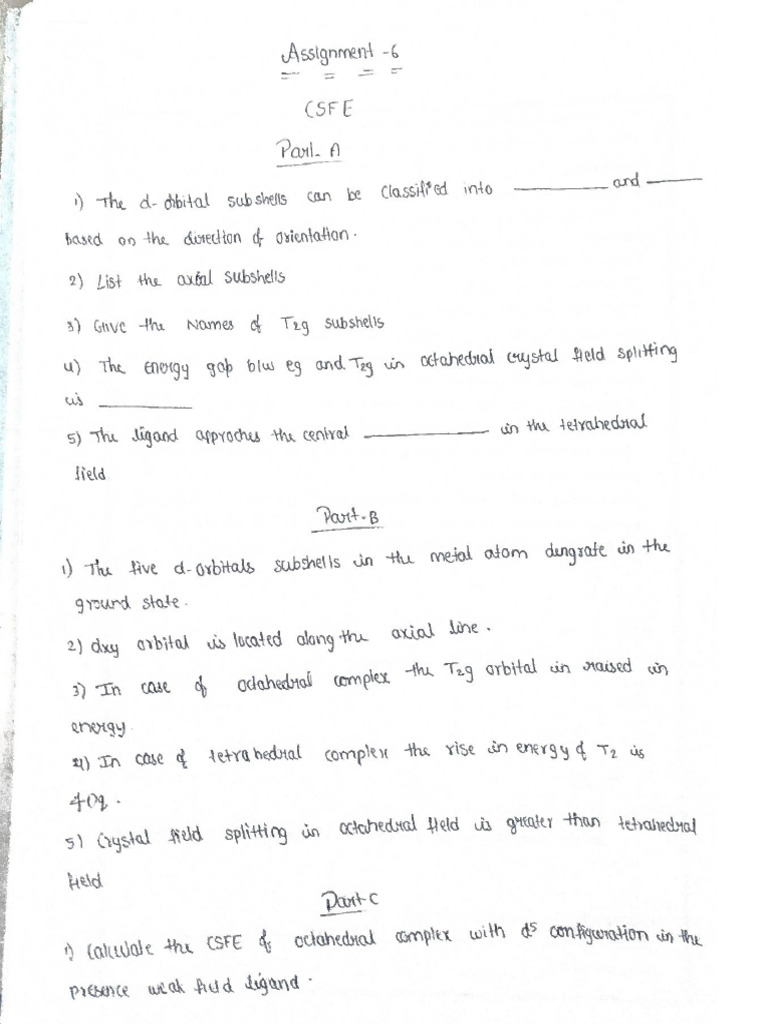 Assignment -6
CSFE
Part- A
1) The d-orbital subshells can be classified into ________ and ______
based on the direction of orientation.
2) List the axial subshells
3) Give the Names of T2g subshells
4) The energy gap b/w eg and T2g in octahedral crystal field splitting
is __________
5) The ligand approches the central ____________ in the tetrahedral
field
Part-B
1) The five d-orbitals subshells in the metal atom dengrate in the
ground state.
2) dxy orbital is located along the axial line.
3) In case of octahedral complex the T2g orbital in raised in
energy.
4) In case of tetrahedral complex the rise in energy of T2 is
4Dq.
5) Crystal field splitting in octahedral field is greater than tetrahedral
field
Part-C
1) Calculate the CSFE of octahedral complex with d5 configuration in the
presence weak field ligand.